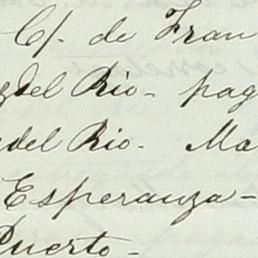 C/. de Fran
del Rio - pag
del Rio. Ma
Esperanza -
Puerto -